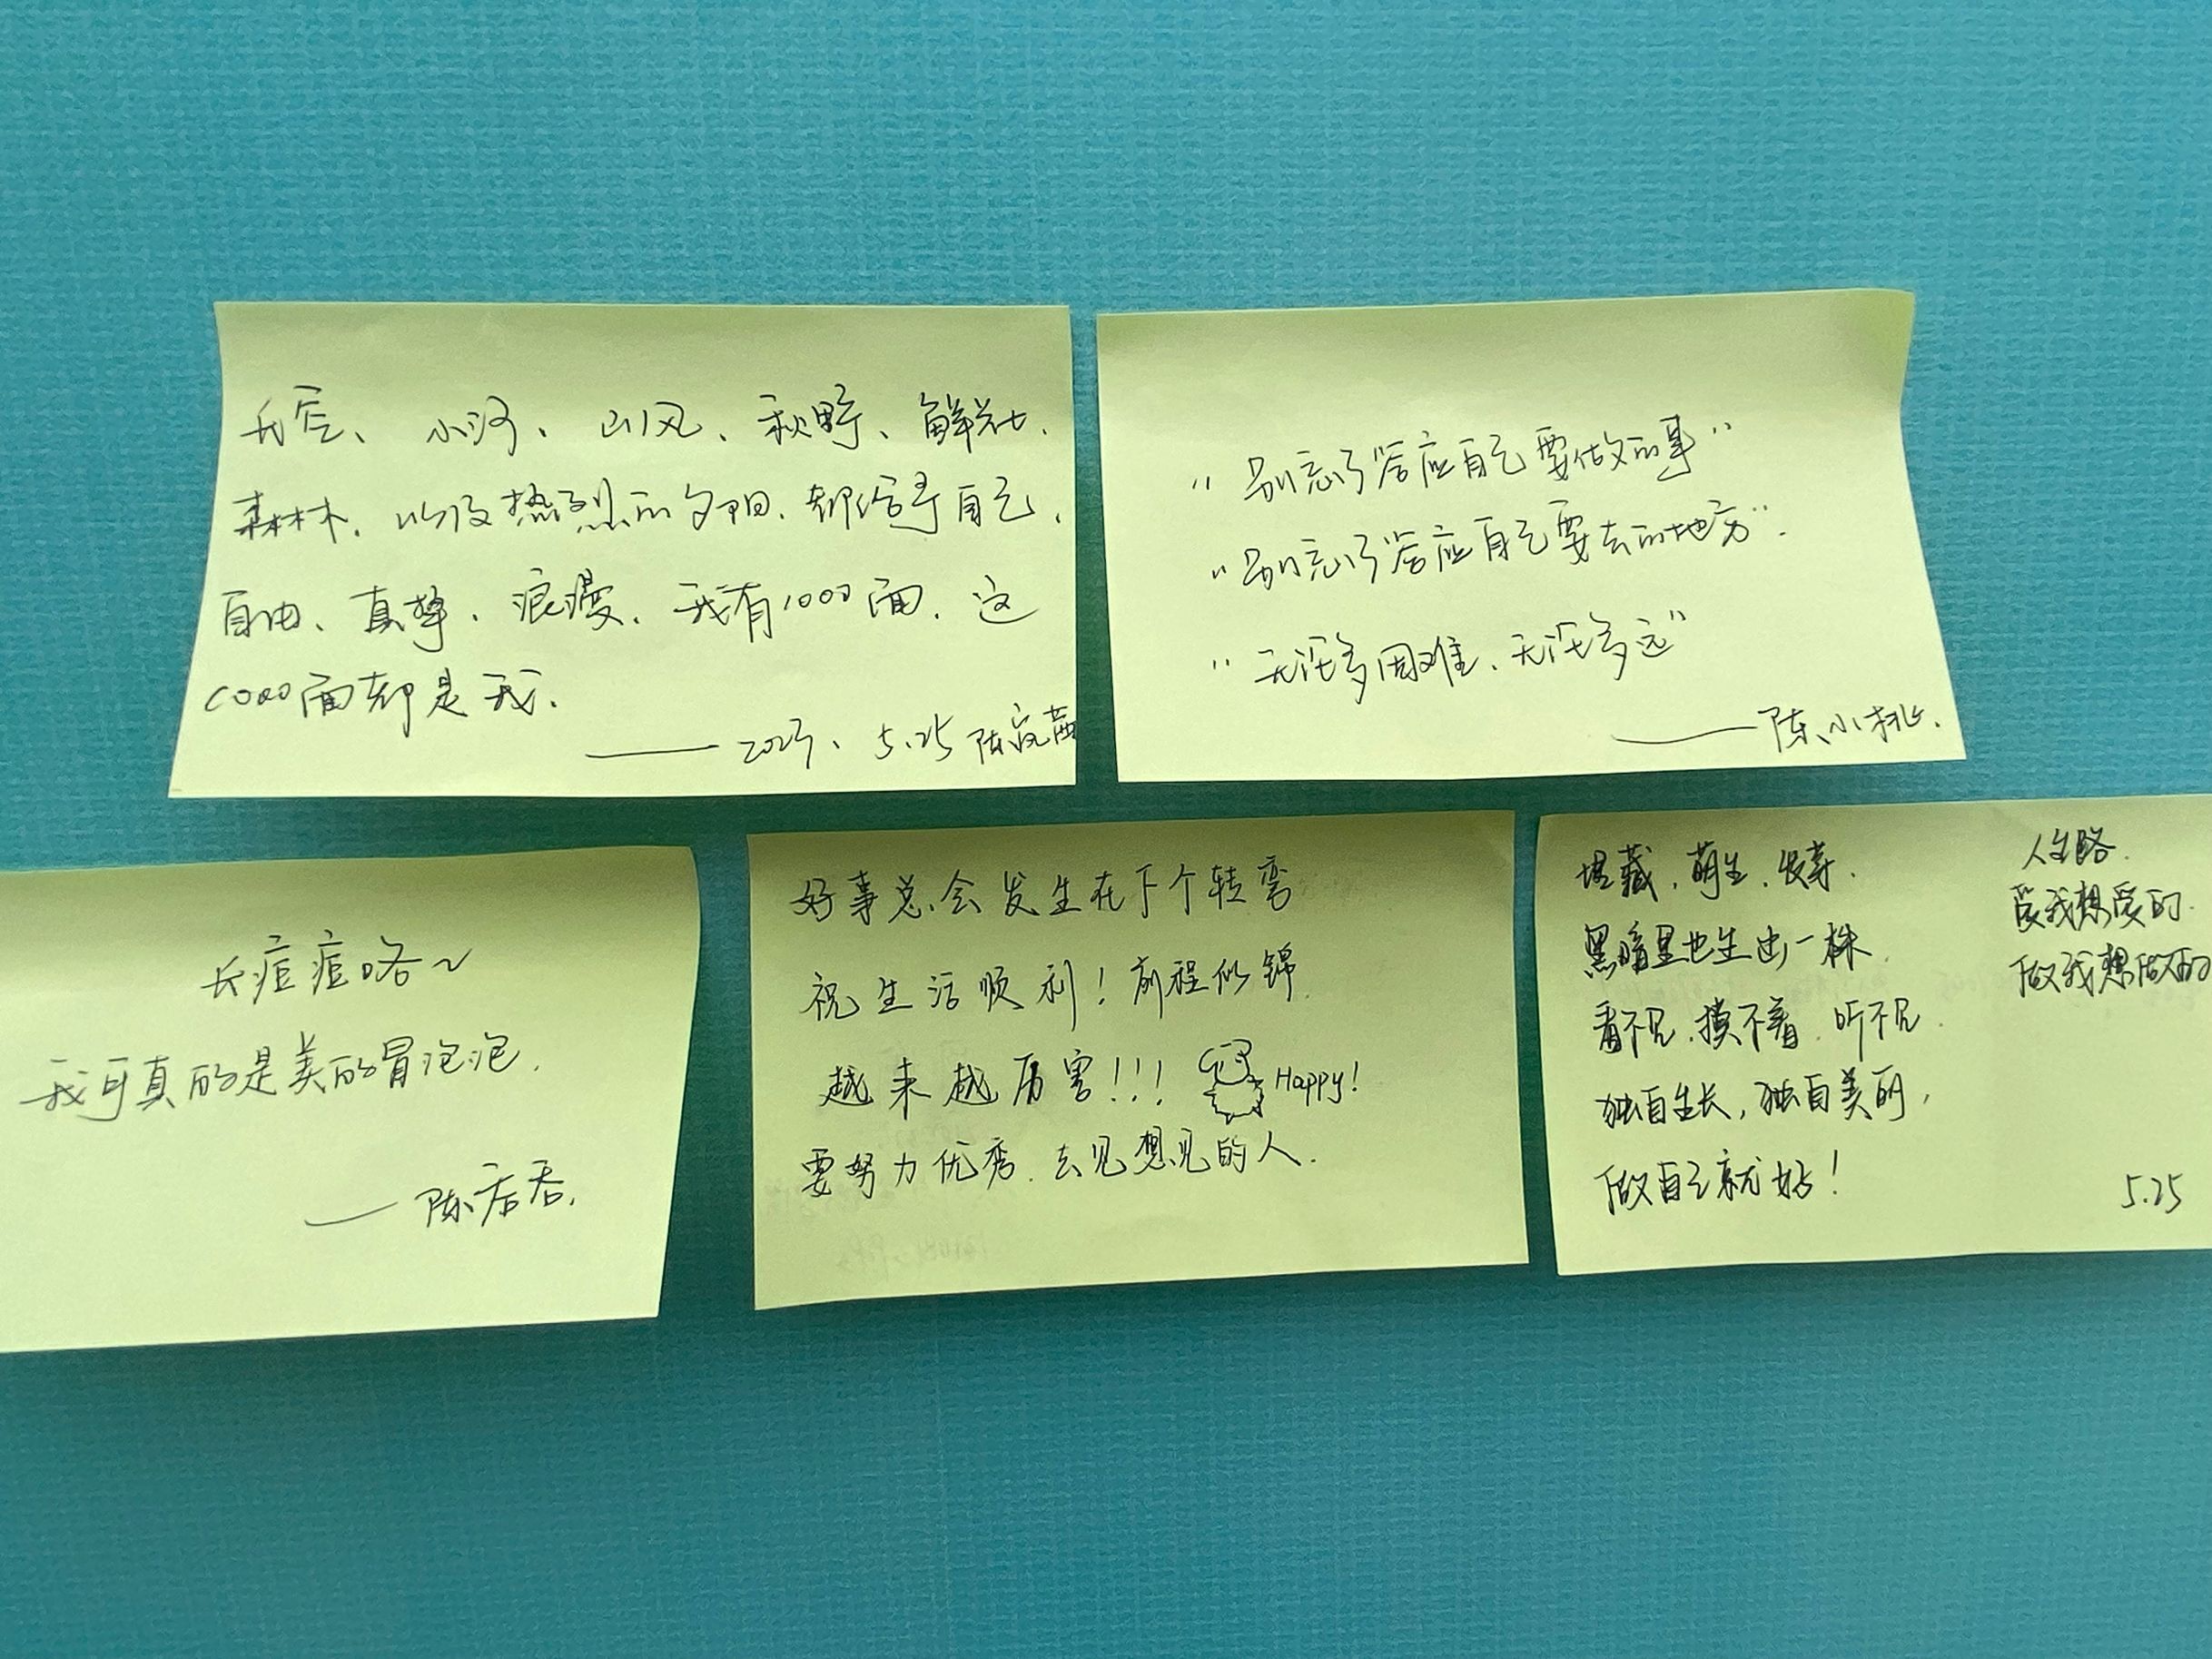 天空、小河、山风、秋野、鲜花、
森林、以及热烈的夕阳、都给予自己、
自由、真挚、浪漫、我有1000面、这
1000面都是我、
—— 2023、5.25 陈
“别忘了答应自己要做的事”
“别忘了答应自己要去的地方”.
“无论多困难、无论多远”
—— 陈小桃.
长痘痘咯~
我可真的是美的冒泡泡、
—— 陈
好事总会发生在下个转弯
祝生活顺利!前程似锦.
越来越厉害!!! Happy!
要努力优秀.去见想见的人.
埋藏.萌生.收芽.
黑暗里也生出一株.
看不见.摸不着.听不见.
独自生长,独自美丽,
做自己就好!
人生路.
爱我想爱的.
做我想做的
5.25